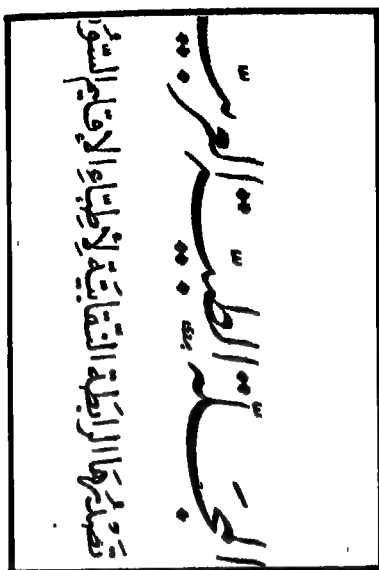 المجلة الطبية العربية
تصدرها الرابطة النقابية لأطباء الإقليم السوري